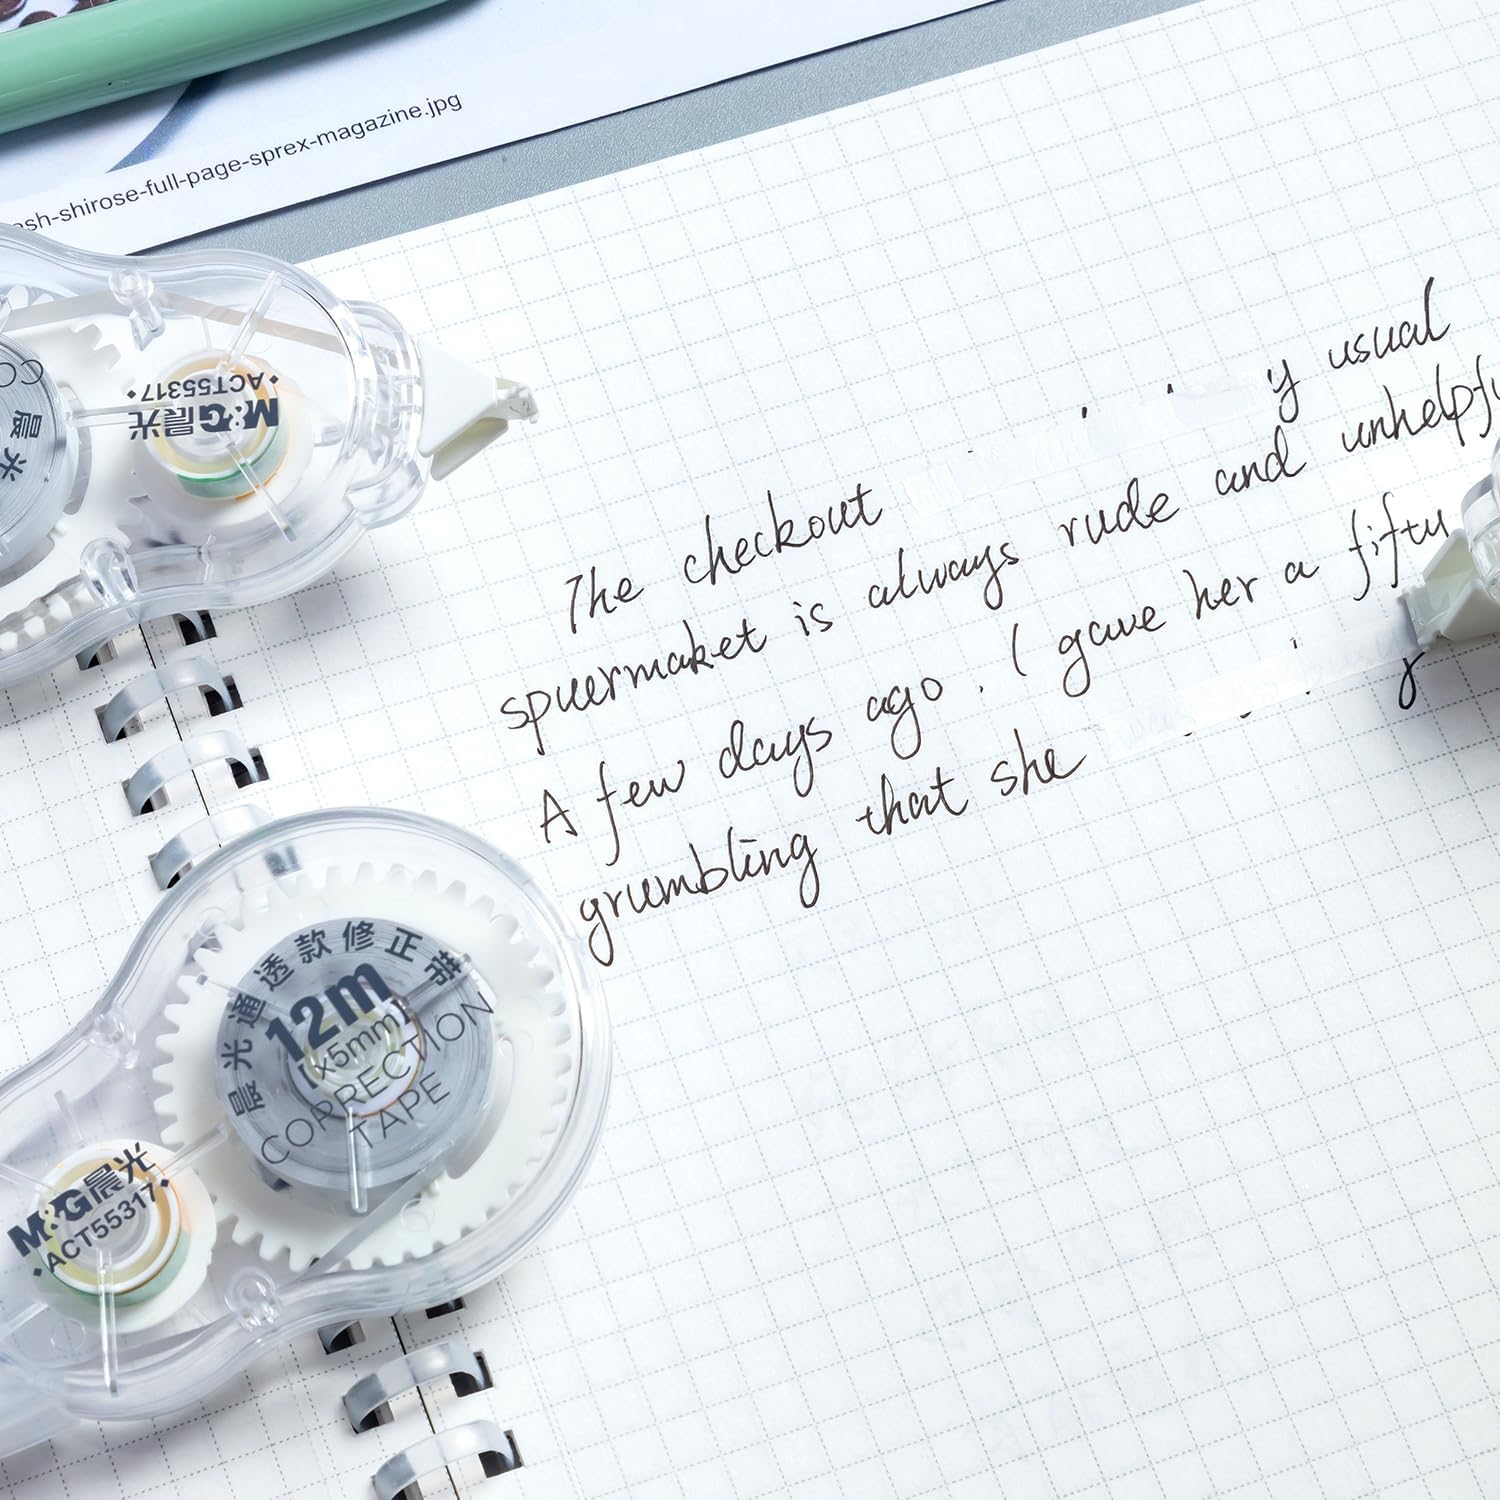 ash-shirose-full-page-sprex-magazine.jpg
M&G晨光
ACT55317
晨光
CO
The checkout y usual
spuermaket is always rude and unhelpfu
A few days ago. I gave her a fifty
grumbling that she
晨光通透款修正带
12m
[x5mm]
CORRECTION
TAPE
M&G晨光
ACT55317